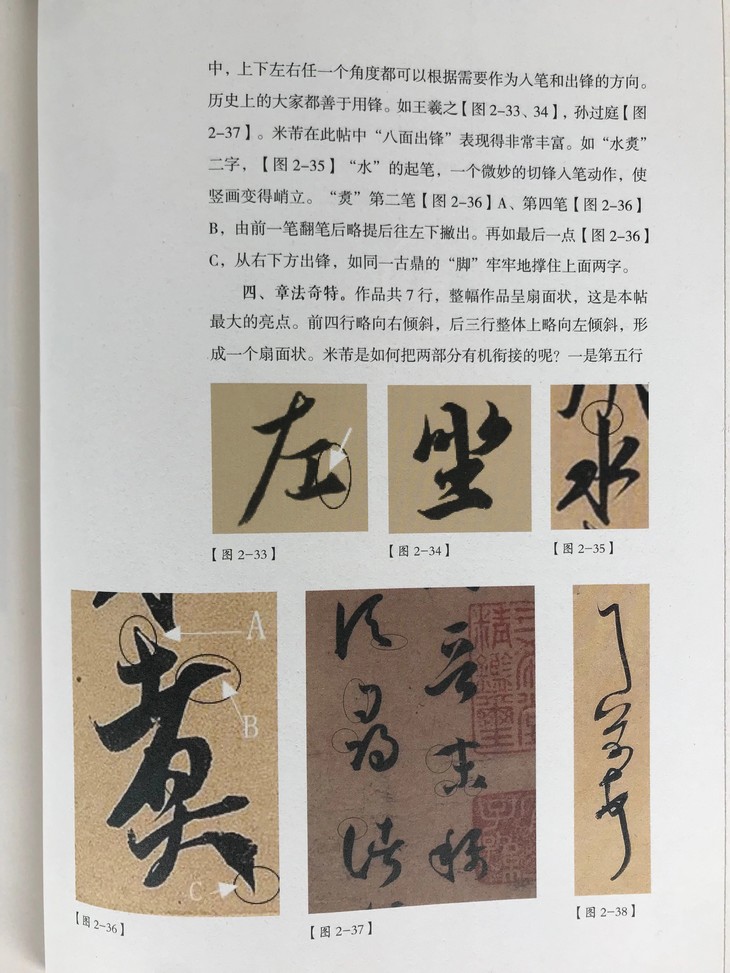 中，上下左右任一个角度都可以根据需要作为入笔和出锋的方向。
历史上的大家都善于用锋。如王羲之【图2-33、34】，孙过庭【图
2-37】。米芾在此帖中“八面出锋”表现得非常丰富。如“水煑”
二字，【图2-35】“水”的起笔，一个微妙的切锋入笔动作，使
竖画变得峭立。“煑”第二笔【图2-36】A、第四笔【图2-36】
B，由前一笔翻笔后略提后往左下撇出。再如最后一点【图2-36】
C，从右下方出锋，如同一古鼎的“脚”牢牢地撑住上面两字。
四、章法奇特。作品共7行，整幅作品呈扇面状，这是本帖
最大的亮点。前四行略向右倾斜，后三行整体上略向左倾斜，形
成一个扇面状。米芾是如何把两部分有机衔接的呢？一是第五行
左
坐
水
【图2-33】
【图2-34】
【图2-35】
A
B
C
【图2-36】
【图2-37】
【图2-38】